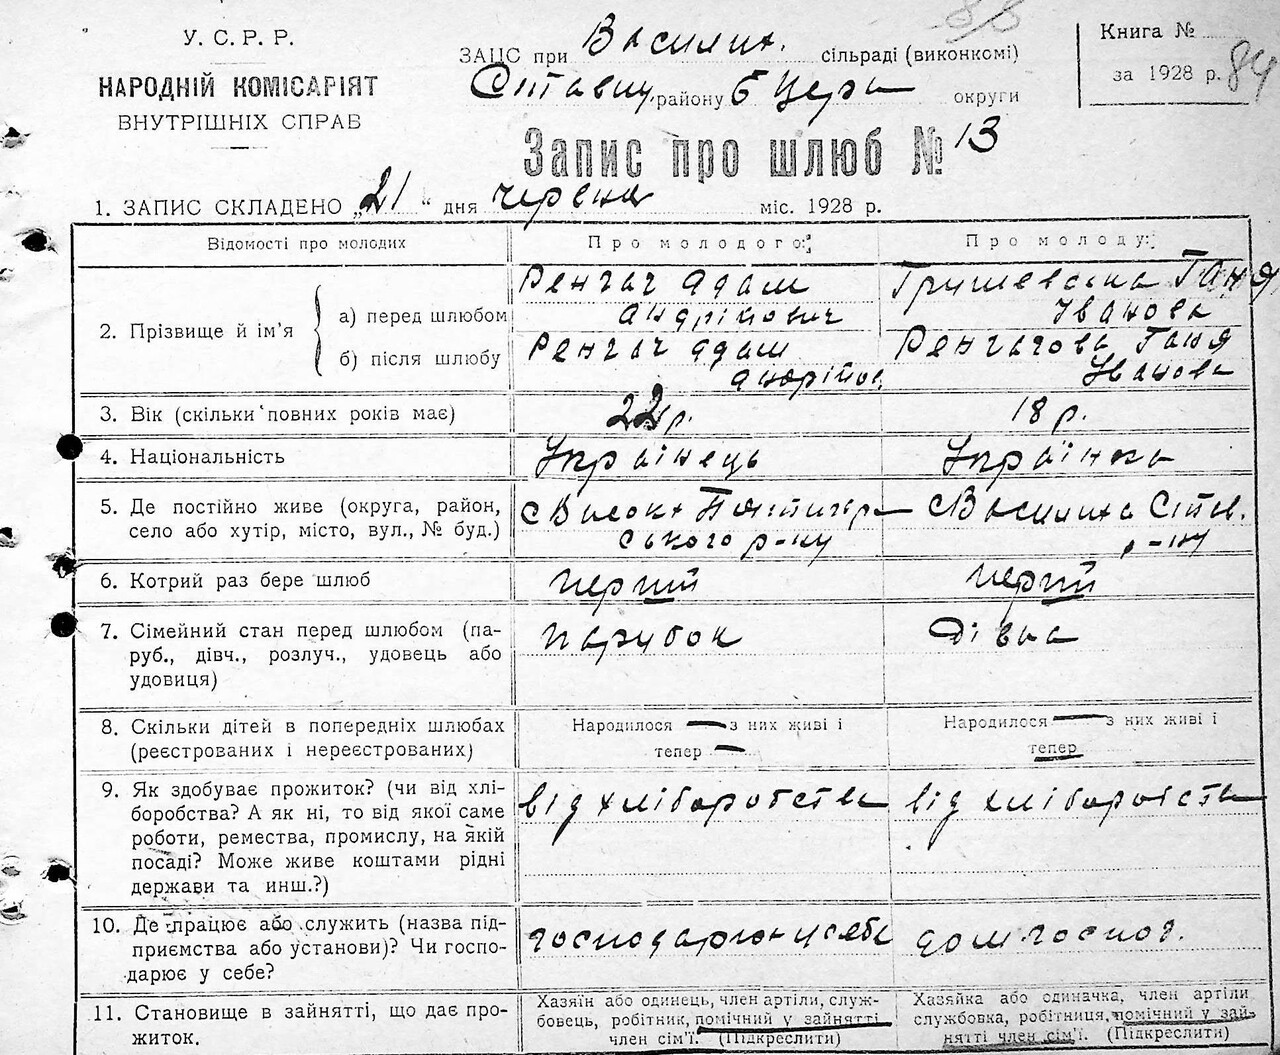 88
У. С. Р. Р.
НАРОДНІЙ КОМІСАРІЯТ
ВНУТРІШНІХ СПРАВ
ЗАЦС при Василих. сільраді (виконкомі)
Ставищ. району Б Церк округи
Книга №
за 1928 р. 84
Запис про шлюб № 13
1. ЗАПИС СКЛАДЕНО „21“ дня червня міс. 1928 р.
Відомості про молодих
Про молодого:
Про молоду:
2. Прізвище й ім'я
а) перед шлюбом
Ренгач Адам
Андрійович
Грушевська Ганя
Іванова
б) після шлюбу
Ренгач Адам
Андрійов
Ренгачова Ганя
Іванова
3. Вік (скільки повних років має)
22 р.
18 р.
4. Національність
Українець
Українка
5. Де постійно живе (округа, район,
село або хутір, місто, вул., № буд.)
с Висока
ського р-ну
с Василиха Став.
р-ну
6. Котрий раз бере шлюб
перший
перший
7. Сімейний стан перед шлюбом (па-
руб., дівч., розлуч., удовець або
удовиця)
парубок
дівка
8. Скільки дітей в попередніх шлюбах
(реєстрованих і нереєстрованих)
Народилося — з них живі і
тепер —
Народилося — з них живі і
тепер
9. Як здобуває прожиток? (чи від хлі-
боробства? А як ні, то від якої саме
роботи, ремества, промислу, на якій
посаді? Може живе коштами рідні
держави та инш.?)
від хліборобства
від хліборобства
10. Де працює або служить (назва під-
приємства або установи)? Чи госпо-
дарює у себе?
господарює у себе
дом господ.
11. Становище в зайнятті, що дає про-
житок.
Хазяїн або одинець, член артіли, служ-
бовець, робітник, помічний у зайнятті
член сім'ї. (Підкреслити)
Хазяйка або одиначка, член артіли
службовка, робітниця, помічний у зай-
нятті член сім'ї. (Підкреслити)